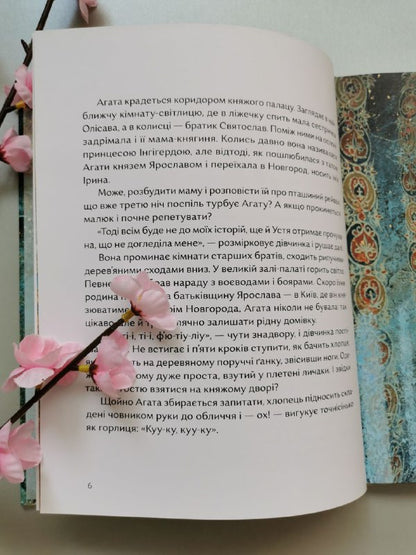 Агата крадеться коридором княжого палацу. Заглядає в най-
ближчу кімнату-світлицю, де в ліжечку спить мала сестричка
Олісава, а в колисці — братик Святослав. Поміж ними на
задрімала і їхня мама-княгиня. Колись давно вона називала
принцесою Інгігердою, але відтоді, як пошлюбилася з
Агати князем Ярославом і переїхала в Новгород, носить
Ірина.
Може, розбудити маму і розповісти їй про пташиний
що вже третю ніч поспіль турбує Агату? А якщо прокинеться
малюк і почне репетувати?
«Тоді всім буде не до моїх історій, ще й Устя отримає прочу-
на, що не догледіла мене», — розмірковує дівчинка і рушає далі.
Вона проминає кімнати старших братів, сходить рипучими
дерев'яними сходами вниз. У великій залі-палаті горить світло.
Певне, рав нараду з воєводами і боярами. Скоро їхня
родина батьківщину Ярослава — в Київ, де він
зюватиме рім Новгорода. Агата ніколи не бувала так
цікаво але й т лячно залишати рідну домівку.
ті-і, ті-і, фю-тіу-ліу», — чути знадвору, і дівчинка
на. Не встигає і п'яти кроків ступити, як бачить хлопця,
на дерев'яному поруччі ґанку, звісивши ноги.
ому дуже проста, взутий у плетені личаки. І звідки
тостю взятися на княжому дворі?
Щойно Агата збирається запитати, хлопець підносить скла-
дені човником руки до обличчя і — ох! — вигукує точнісінько
як горлиця: «Куу-ку, куу-ку».
6